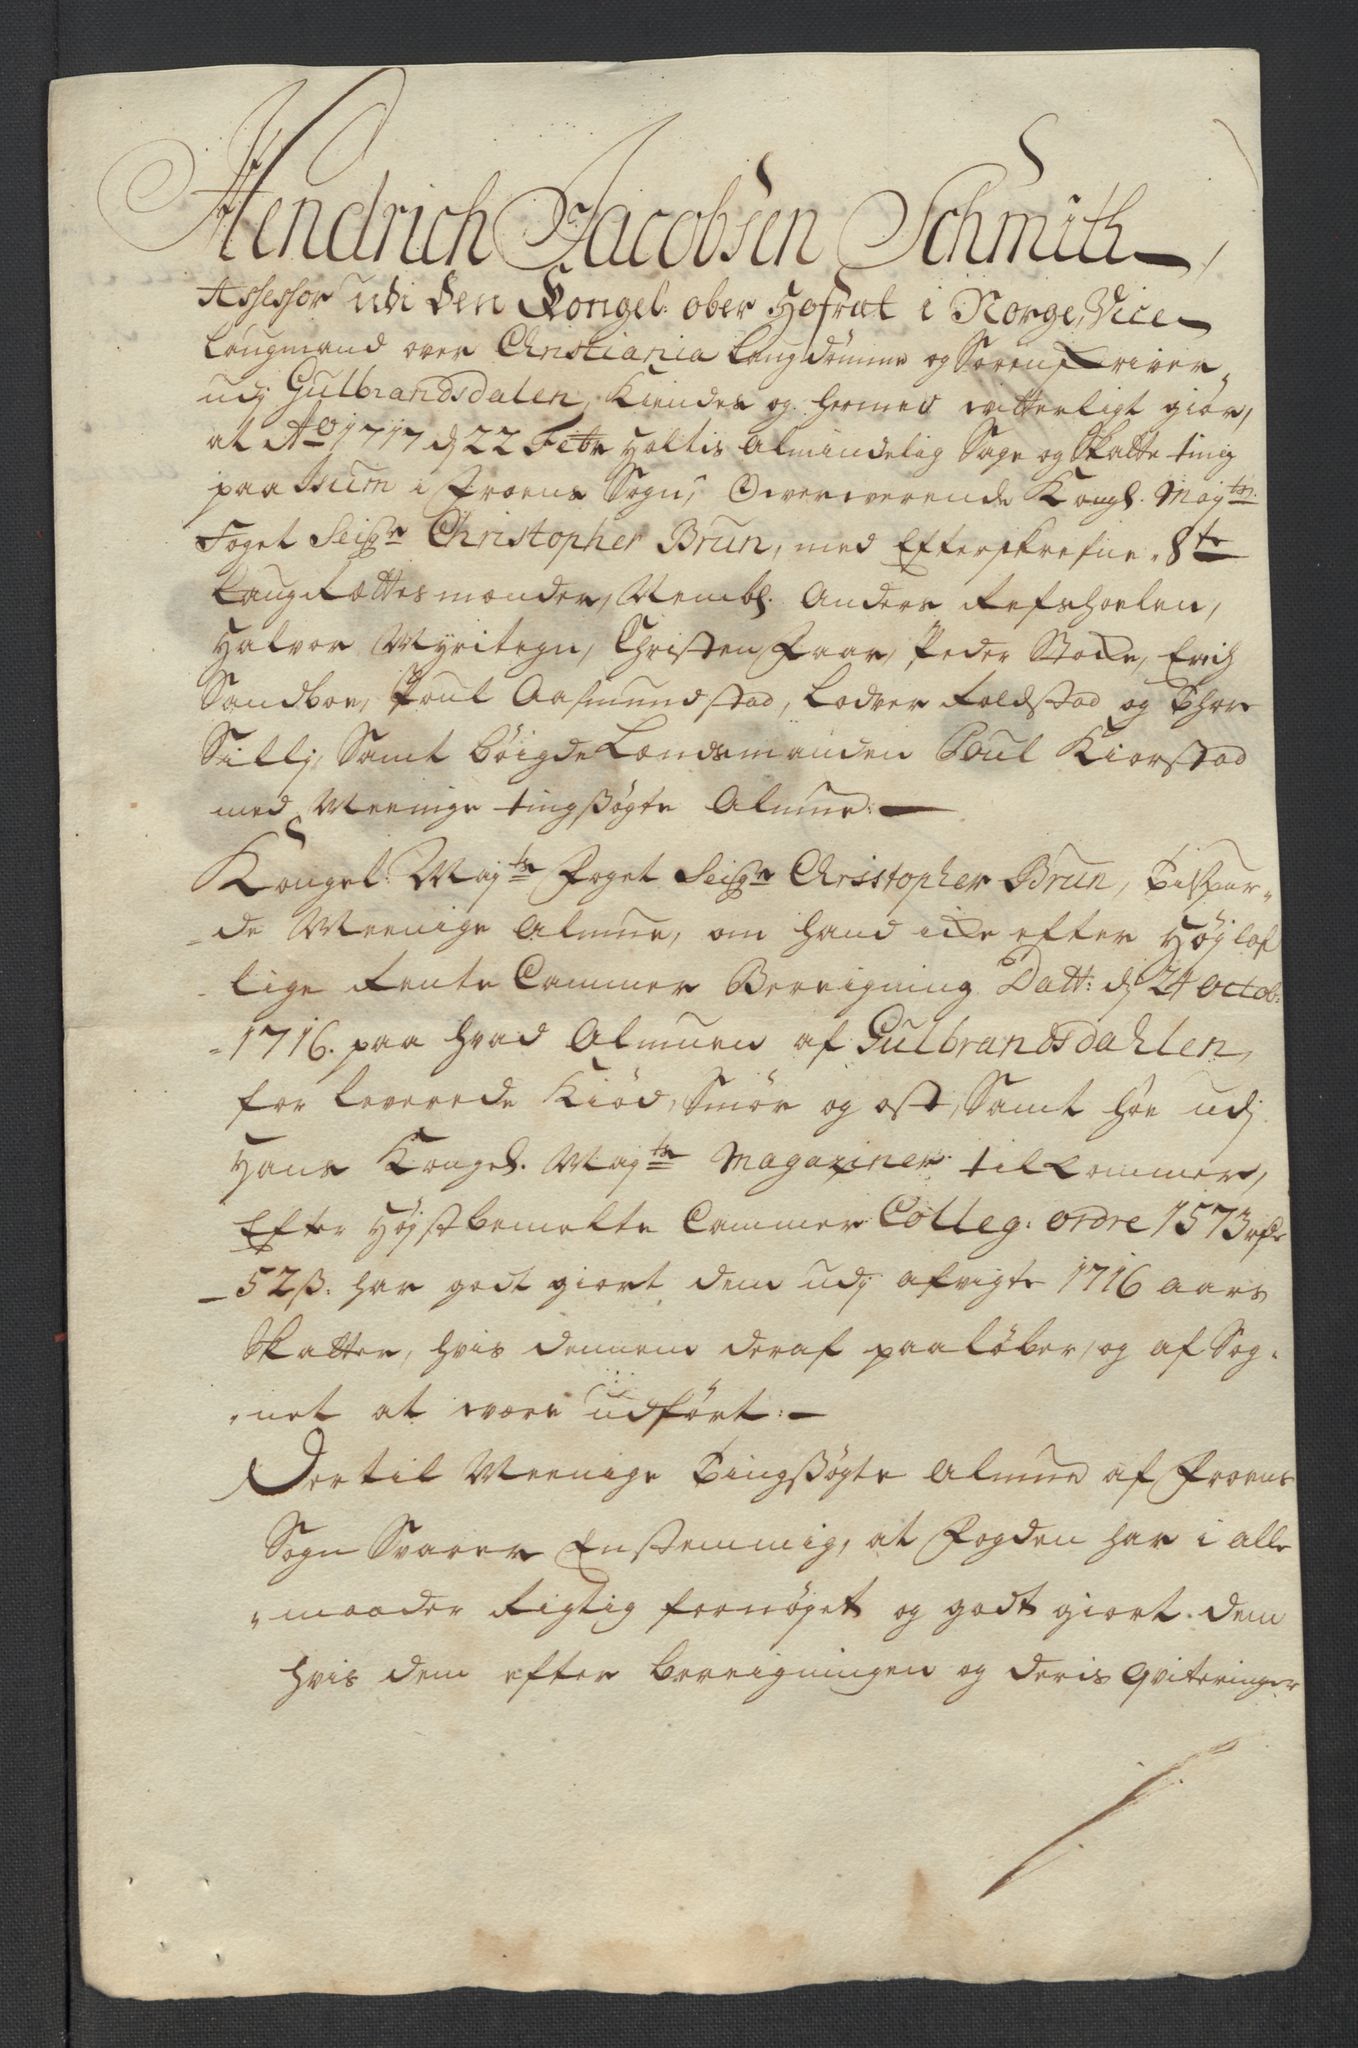 Hendrich Jacobsen Schmith
Assessor udi den Kongel: ober Hofræt i Norge, Vice
Laugmand over Christiania Laugdømme og Sorenskriver
udj Gulbrandsdalen, Kiendes og hermed witterligt giør,
at Ao 1717 dj 22 Febr Holtis Almindelig Sage og Skatte ting
paa Sum i Froens Sogn, Overværende Kongl. Maytz.
Foget Seigr Christopher Brun, med Efterskrefne 8te
LaugRættes mænder, Nembl. Anders Refshoelen,
Halvor Myritegn, Christen Faar, Peder Stocke, Erich
Sandboe, Poul Aasmundstad, Lodver Foldstad og Thor
Sillj, Samt böigde Lændsmanden Poul Kiorstad
med Meenige tingsøgte Almue:
Kongel: Maytz Foget Seigr Christopher Brun, Tilspur-
-de Meenige Almue, om hand icke efter Høylof
lige Rente Cammer Beregning Datt: dj 24 Octob:
1716. paa hvad Almuen af Gulbrandsdahlen,
for leverede Kiød, Smør og ost, Samt høe udj
Hans Kongel. Maytz Magaziner tilkommer,
Efter Højstbemelte Cammer Colleg: ordre 1573 rdr
52 ß. har godt giort dem udj afvigte 1716 aars
Skatter, hvis dennem deraf paaløber, og af Sog-
net at være udført:
Dertil Meenige Tingsøgte Almue af Froens
Sogn Svarer Enstemmig, at Fogden har i alle
maader Rigtig fornøyet og godt giort dem
hvis dem efter beregningen og deris qviteringer